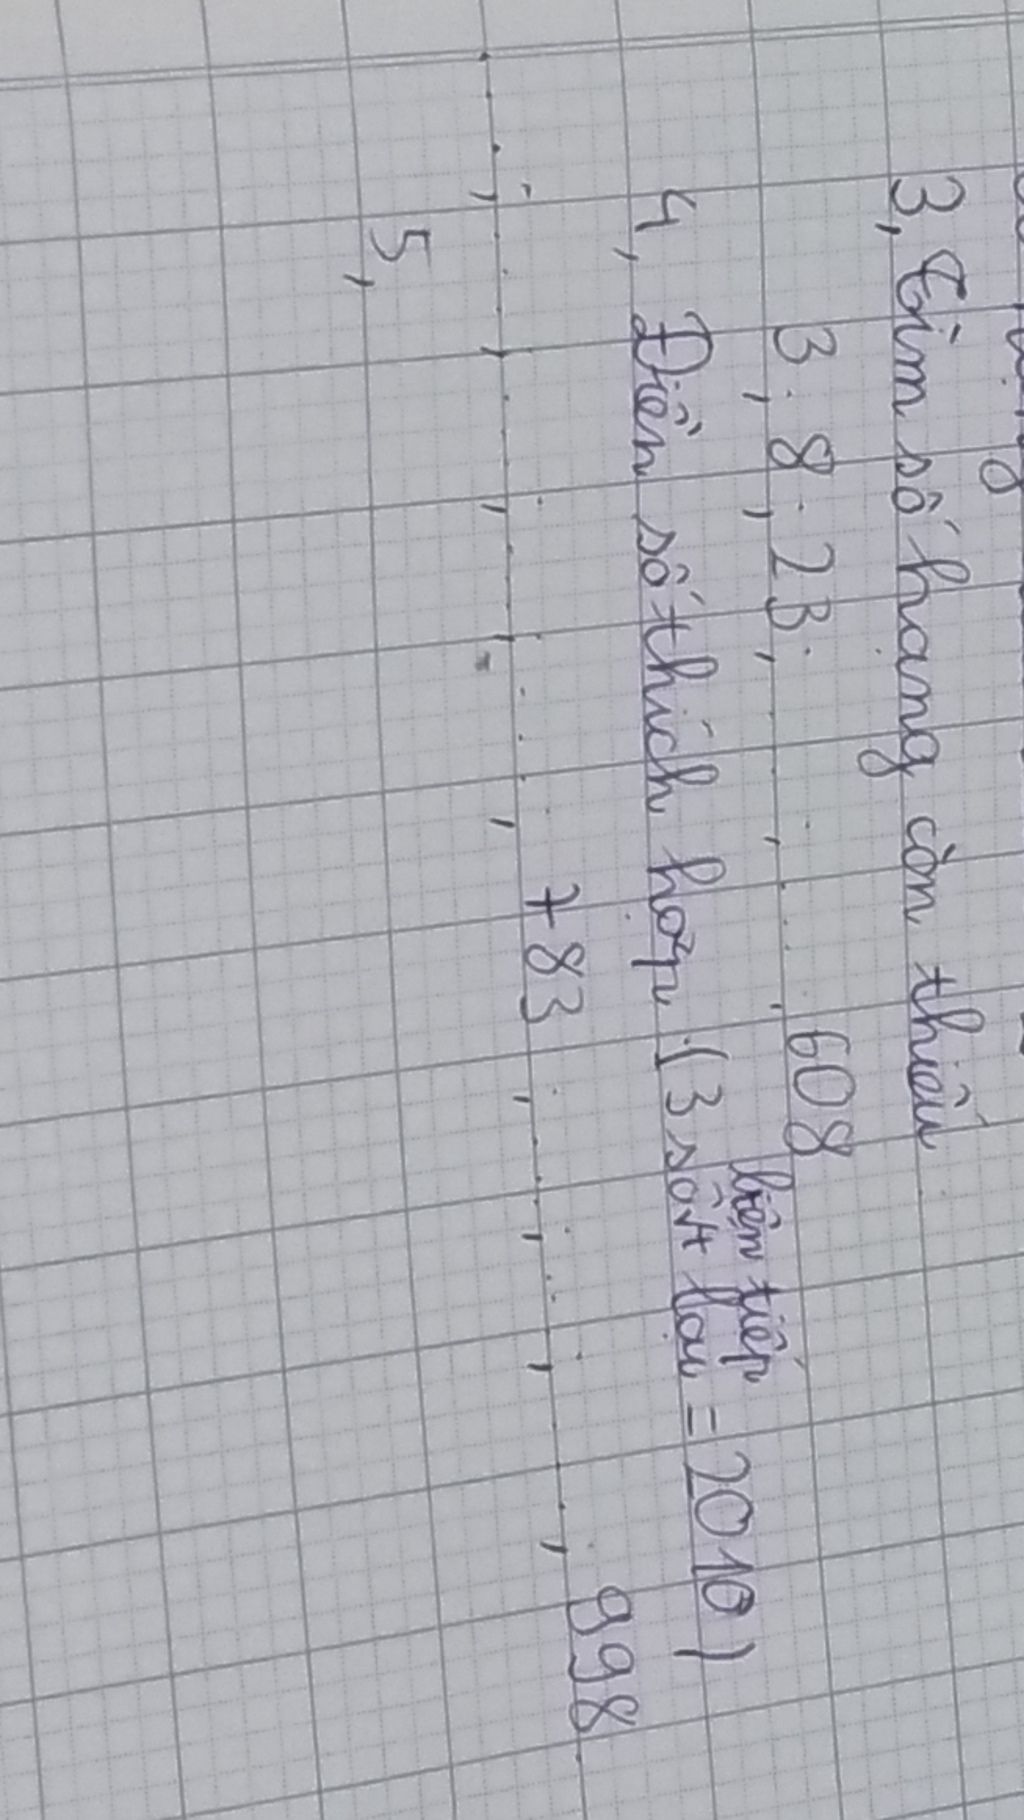 3, Tìm số hạng còn thiếu
3 ; 8 ; 23 ; ... ; ... 608
liên tiếp
4, Điền số thích hợp (3 số t lại = 2010)
... ; ... ; ... ; ... ; ... ; 783 ; ... ; ... ; ... ; 998
5,